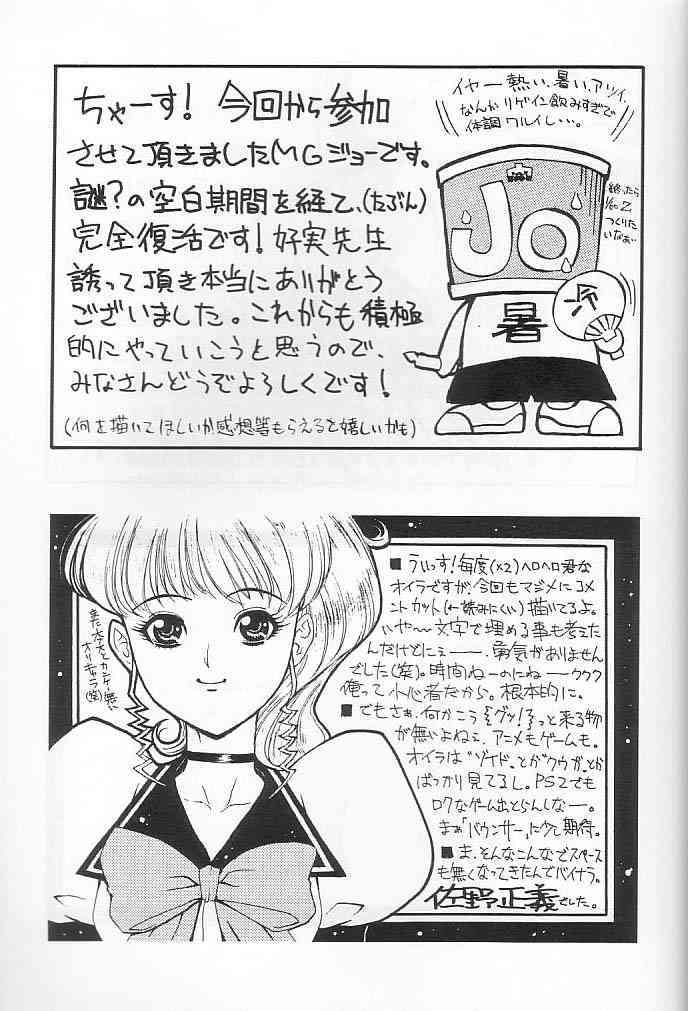 ちゃーす! 今回から参加
させて頂きましたMGジョーです。
謎?の空白期間を経て、(たぶん)
完全復活です! 好実先生
誘って頂き本当にありがとう
ございました。これからも積極
的にやっていこうと思うので、
みなさんどうぞよろしくです!
(何を描いてほしいか感想等もらえると嬉しいかも)
イヤー熱い、暑い、アツイ、
なんかリゲイン飲みすぎで
体調ワルイし…。
Jo
終ったら
1/100 Z
つくりた
いなぁ…
暑
冷
■うぃっす!毎度(×2)ヘロヘロ君な
オイラですが、今回もマジメにコメ
ントカット(←読みにくい)描いてるよ。
いや〜文字で埋める事も考えた
んだけどにぇー、勇気がありません
でした(笑)。時間ねーのにねークククク
俺って小心者だから。根本的に。
■でもさぁ、何かこう{グッ!}っと来る物
が無いよねぇ、アニメもゲームも。
オイラは"ゾイド"とか"クウガ"とか
ばっかり見てるし。PS2でも
ロクなゲーム出とらんしなー。
まぁ「バウンサー」に少し期待。
■ま、そんなこんなでスペース
も無くなってきたんでバイナラ。
佐野正義でした。
また本文とカンケー無い
オリキャラ(笑)